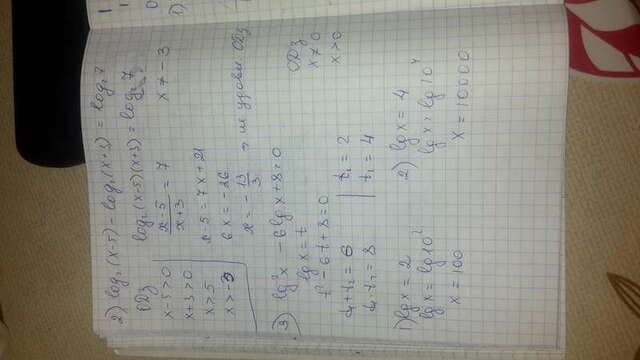 2) log₂(x-5) - log₂(x+3) = log₂ 7
ОДЗ
x-5>0
x+3>0
x>5
x>-3
log₂(x-5)(x+3) = log₂ 7
(x-5)/(x+3) = 7
x ≠ -3
x-5 = 7x+21
6x = -26
x = -13/3 → не удовл ОДЗ
3) lg²x - 6lgx+8=0
ОДЗ
x≠0
x>0
lgx = t
t²-6t+8=0
t₁+t₂=6
t₁·t₂=8
t₁ = 2
t₂ = 4
1) lgx = 2
lgx = lg10²
x = 100
2) lgx = 4
lgx = lg10⁴
x = 10000
1)